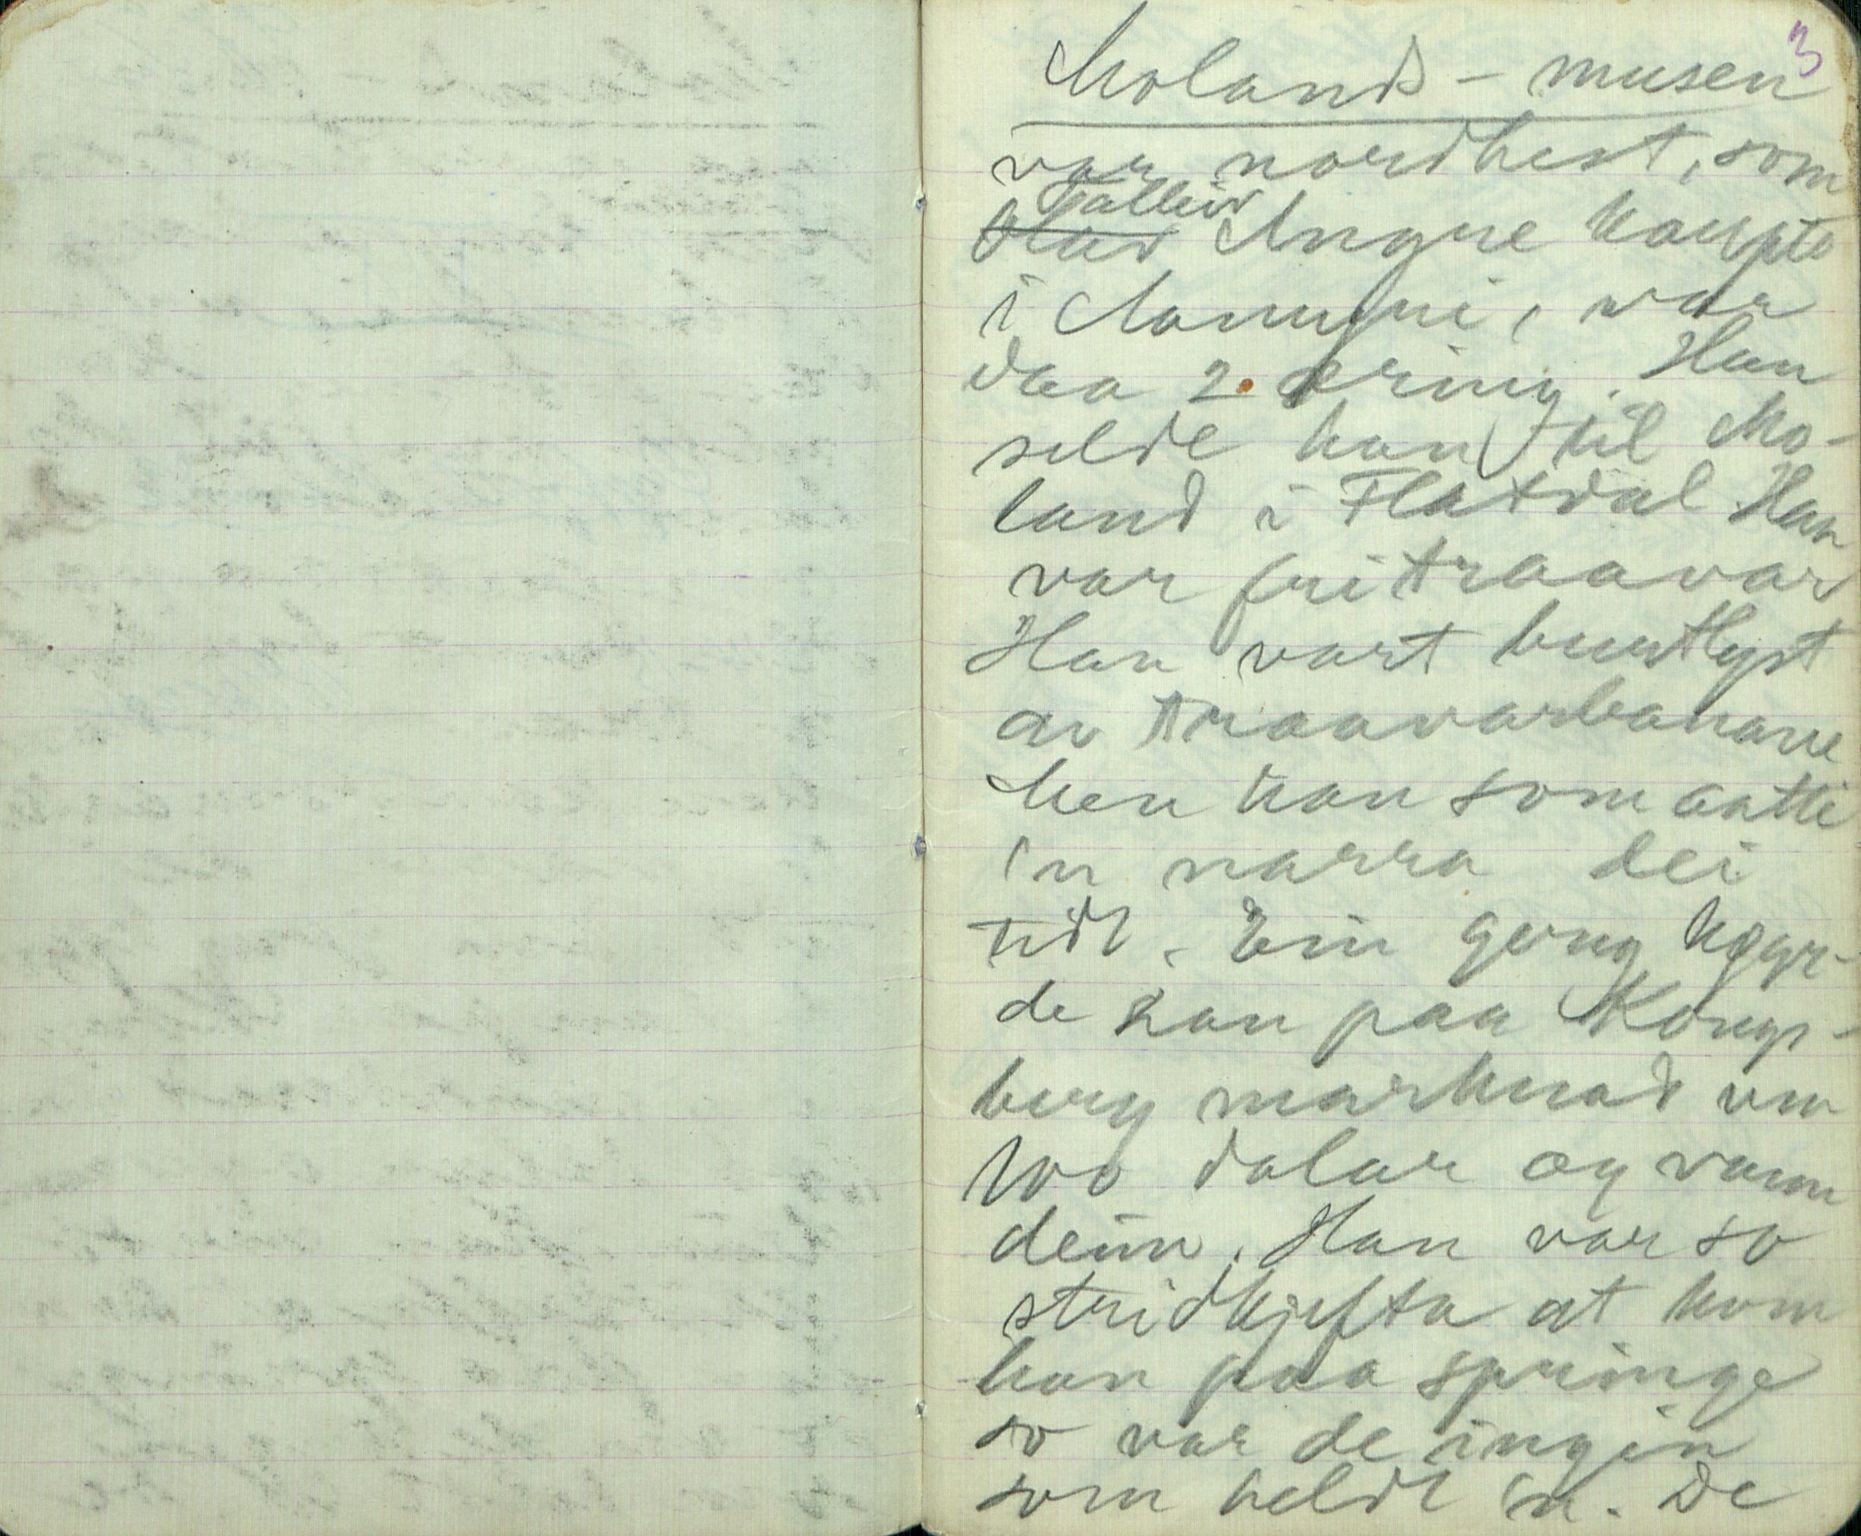 3
Molands-musen
var nordhest, som
Talleiv
Olav Yngve kaupte
i Numyri, var
daa 2. æring. Han
selde han til Mo-
land i Flatdal Han
var fritraavar
Han vart burtlyst
av traavarbanane
Men han som aatte
'n narra dei
tidt. Ein gong køyr-
de han paa Kongs-
berg marknad um
100 dalar og vann
deim. Han var so
stridkjefta at kom
han paa springe
so var de ingin
som heldt 'n. De